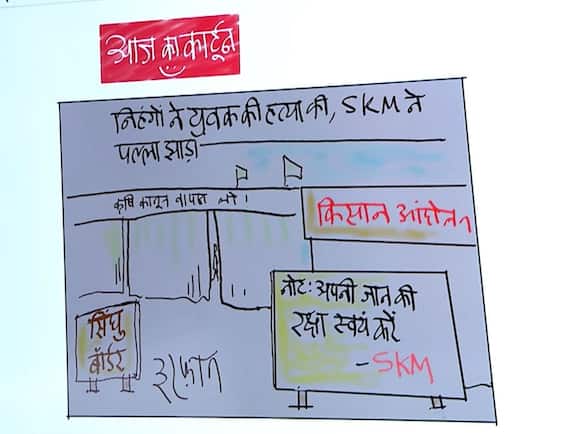 आज का कार्टून
निहंगों ने युवक की हत्या की, SKM ने
पल्ला झाड़ा
कृषि कानून वापस लो।
किसान आंदोलन
नोट: अपनी जान की
रक्षा स्वयं करें
-SKM
सिंघु
बॉर्डर
इरफान